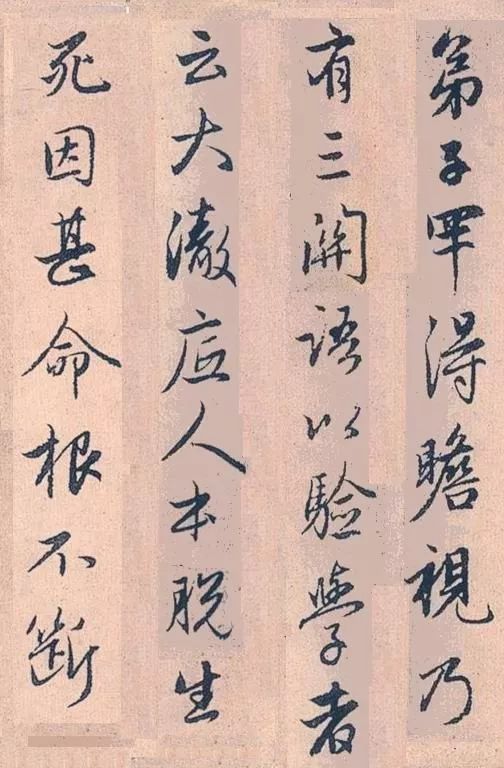 弟子罕得瞻視乃
有三關語以驗學者
云大澈底人本脫生
死因甚命根不斷